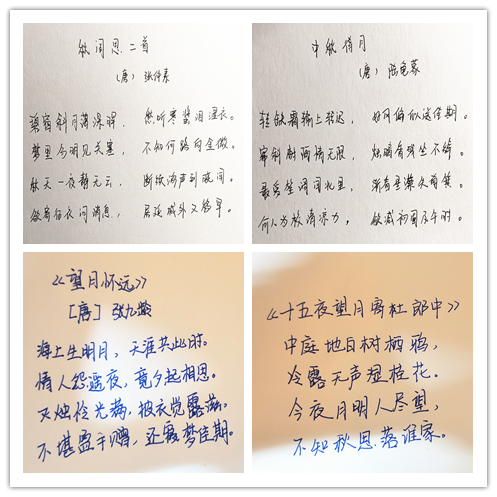 秋闺思二首
（唐）张仲素
碧窗斜月蔼深晖， 愁听寒螀泪湿衣。
梦里分明见关塞， 不知何路向金微。
秋天一夜静无云， 断续鸿声到晓闻。
欲寄征衣问消息， 居延城外又移军。
中秋待月
（唐）陆龟蒙
转缺霜输上转迟， 好风偏似送佳期。
帘斜树隔情无限， 烛暗香残坐不辞。
最爱笙调闻北里， 渐看星澹失南箕。
何人为校清凉力， 欲减初圆及午时。
《望月怀远》
[唐] 张九龄
海上生明月，天涯共此时。
情人怨遥夜，竟夕起相思。
灭烛怜光满，披衣觉露滋。
不堪盈手赠，还寝梦佳期。
《十五夜望月寄杜郎中》
中庭地白树栖鸦，
冷露无声湿桂花。
今夜月明人尽望，
不知秋思落谁家。